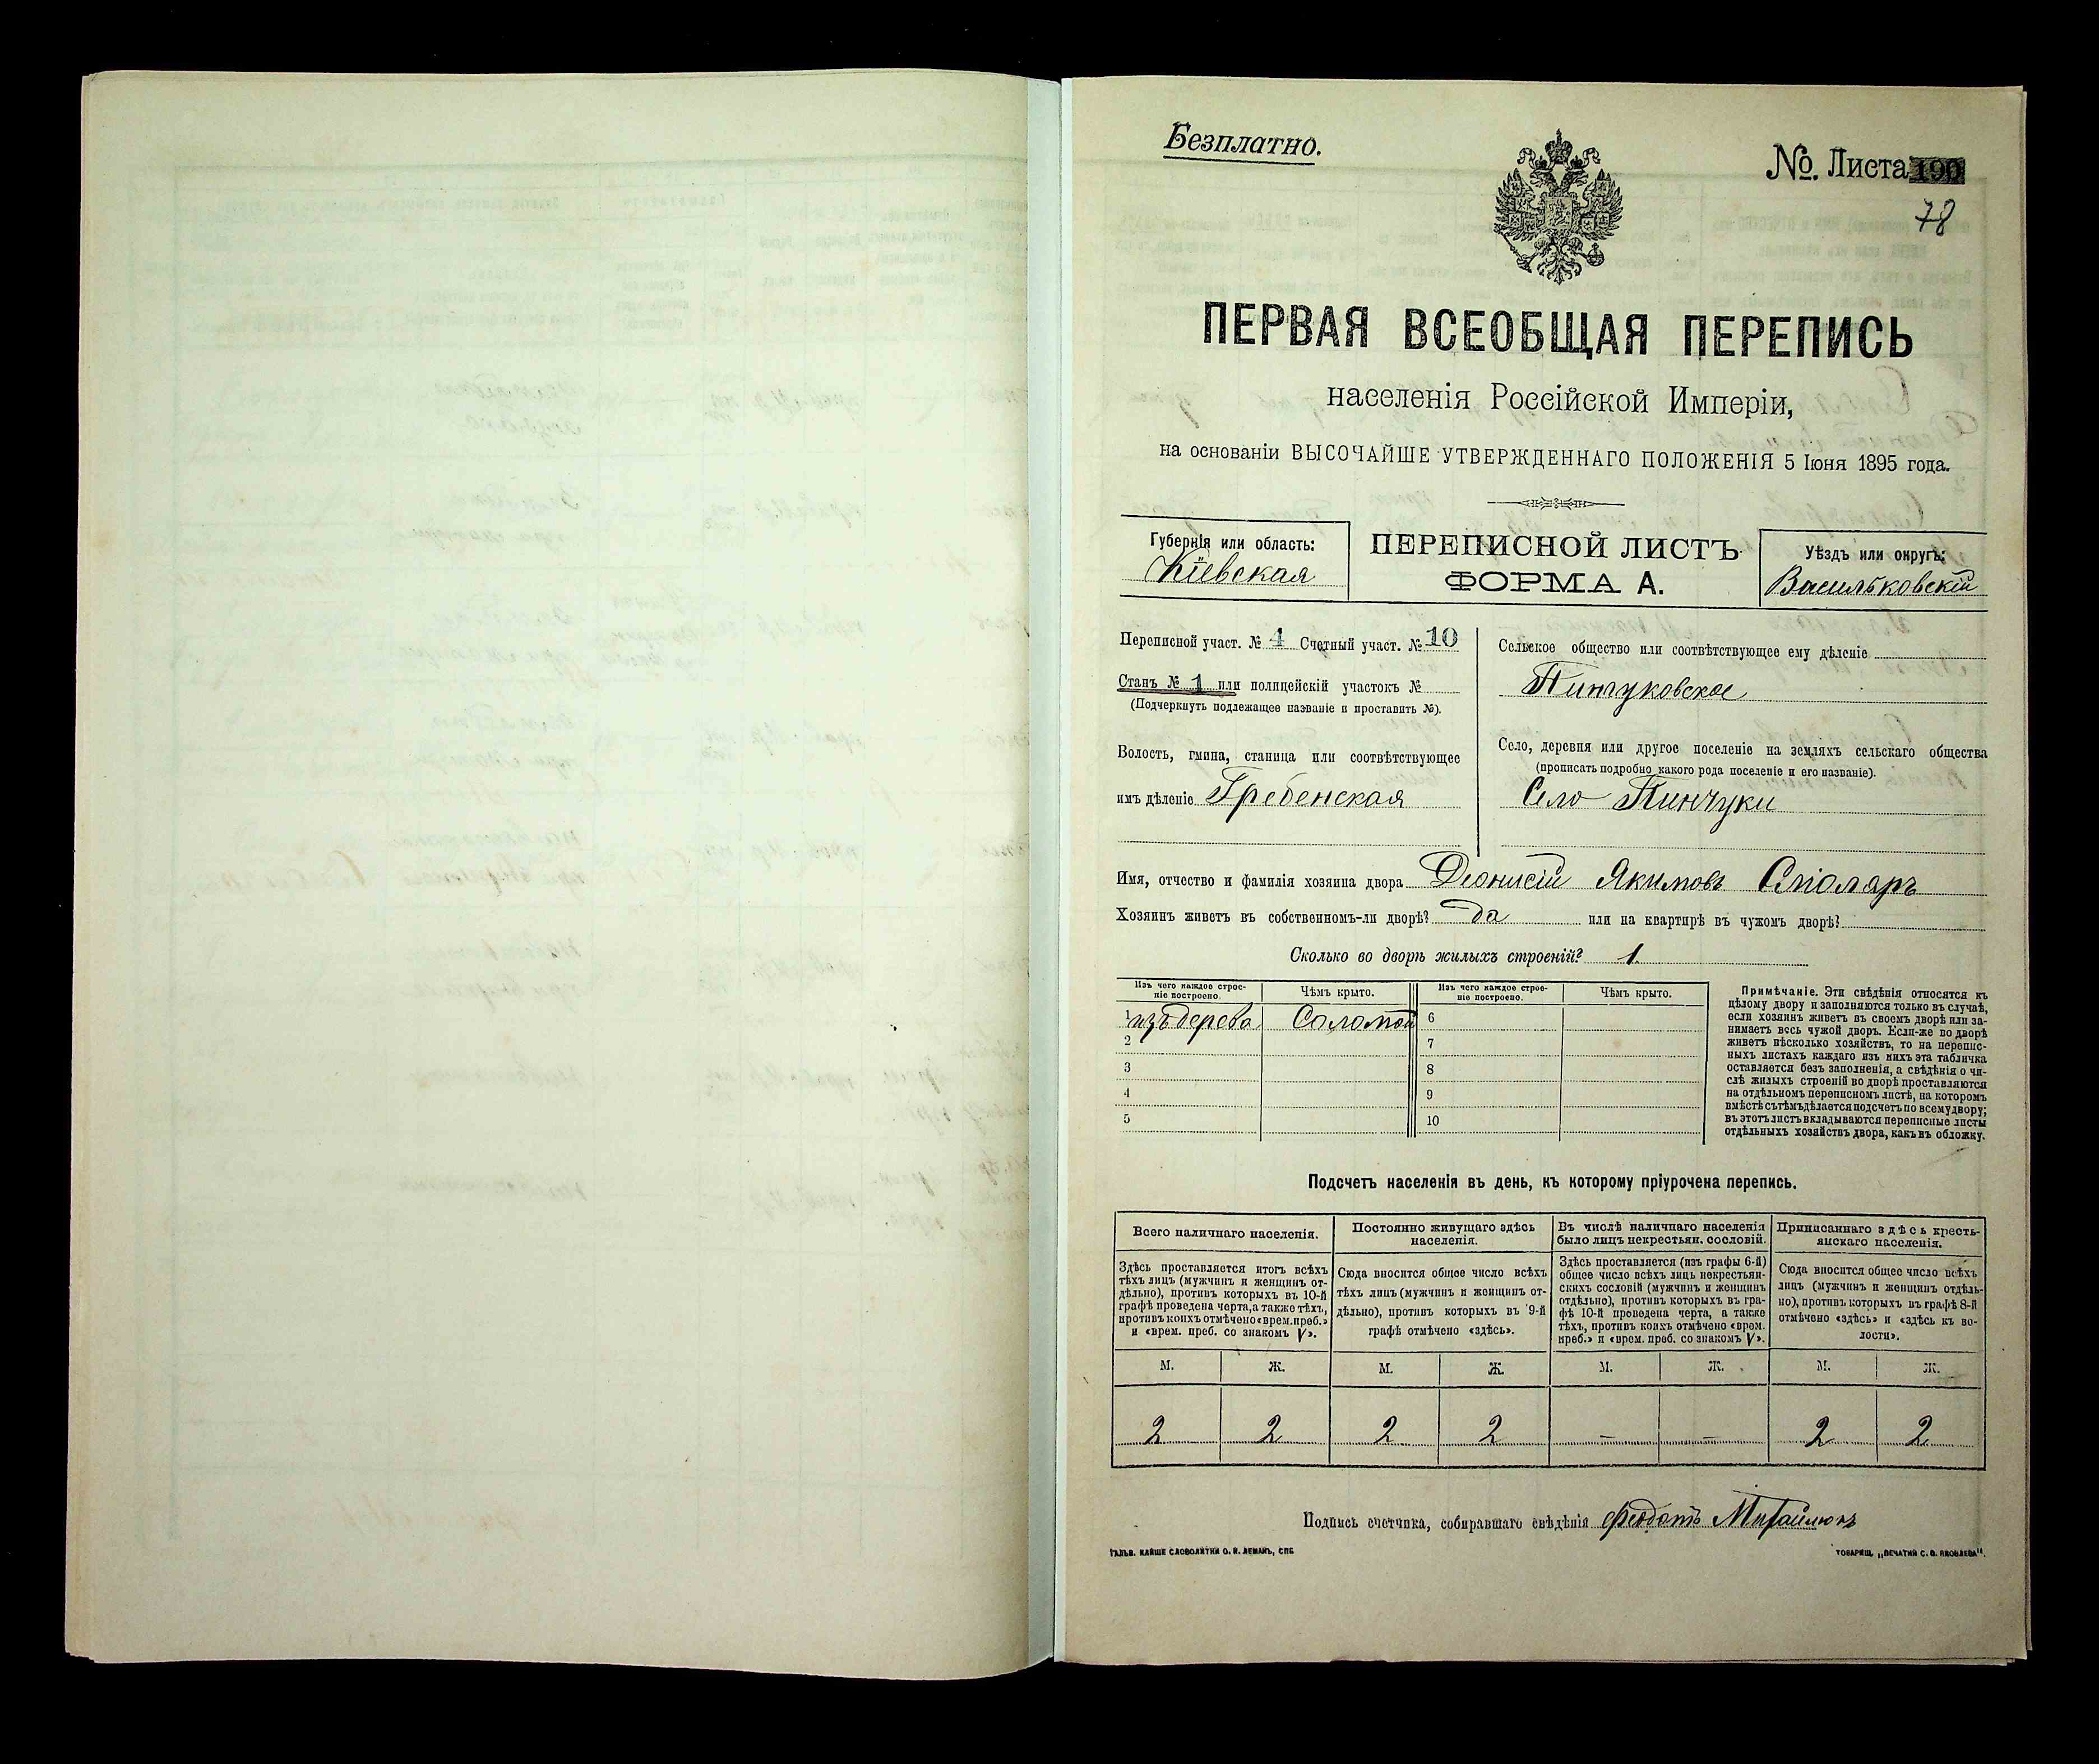 Безплатно.
№. Листа 190
78
ПЕРВАЯ ВСЕОБЩАЯ ПЕРЕПИСЬ
населенія Россійской Имперіи,
на основаніи ВЫСОЧАЙШЕ УТВЕРЖДЕННАГО ПОЛОЖЕНІЯ 5 Іюня 1895 года.
Губернія или область:
Кіевская
ПЕРЕПИСНОЙ ЛИСТЪ
ФОРМА А.
Уѣздъ или округъ:
Васильковскій
Переписной участ. № 4 Счетный участ. № 10
Станъ № 1 или полицейскій участокъ №
(Подчеркнуть подлежащее названіе и проставить №).
Волость, гмина, станица или соотвѣтствующее
имъ дѣленіе Гребенская
Сельское общество или соотвѣтствующее ему дѣленіе
Пинчуковское
Село, деревня или другое поселеніе на земляхъ сельскаго общества
(прописать подробно какого рода поселеніе и его названіе).
Село Пинчуки
Имя, отчество и фамилія хозяина двора Діонисій Якимовъ Столяръ
Хозяинъ живетъ въ собственномъ-ли дворѣ? да или на квартирѣ въ чужомъ дворѣ?
Сколько во дворѣ жилыхъ строеній? 1
Изъ чего каждое строе-
ніе построено.
Чѣмъ крыто.
Изъ чего каждое строе-
ніе построено.
Чѣмъ крыто.
1 изъ дерева Соломой 6
2 7
3 8
4 9
5 10
Примѣчаніе. Эти свѣдѣнія относятся къ
цѣлому двору и заполняются только въ случаѣ,
если хозяинъ живетъ въ своемъ дворѣ или за-
нимаетъ весь чужой дворъ. Если-же во дворѣ
живетъ нѣсколько хозяйствъ, то на перепис-
ныхъ листахъ каждаго изъ нихъ эта табличка
оставляется безъ заполненія, а свѣдѣнія о чи-
слѣ жилыхъ строеній во дворѣ проставляются
на отдѣльномъ переписномъ листѣ, на которомъ
вмѣстѣ съ тѣмъ дѣлается подсчетъ по всему двору;
въ этотъ листъ вкладываются переписные листы
отдѣльныхъ хозяйствъ двора, какъ въ обложку.
Подсчетъ населенія въ день, къ которому пріурочена перепись.
Всего наличнаго населенія.
Постоянно живущаго здѣсь
населенія.
Въ числѣ наличнаго населенія
было лицъ некрестьян. сословій.
Приписаннаго здѣсь кресть-
янскаго населенія.
Здѣсь проставляется итогъ всѣхъ
тѣхъ лицъ (мужчинъ и женщинъ от-
дѣльно), противъ которыхъ въ 10-й
графѣ проведена черта, а также тѣхъ,
противъ коихъ отмѣчено «врем. преб.»
и «врем. преб. со знакомъ V».
Сюда вносится общее число всѣхъ
тѣхъ лицъ (мужчинъ и женщинъ от-
дѣльно), противъ которыхъ въ 9-й
графѣ отмѣчено «здѣсь».
Здѣсь проставляется (изъ графы 6-й)
общее число всѣхъ лицъ некрестьян-
скихъ сословій (мужчинъ и женщинъ
отдѣльно), противъ которыхъ въ гра-
фѣ 10-й проведена черта, а также
тѣхъ, противъ коихъ отмѣчено «врем.
преб.» и «врем. преб. со знакомъ V».
Сюда вносится общее число всѣхъ
лицъ (мужчинъ и женщинъ отдѣль-
но), противъ которыхъ въ графѣ 8-й
отмѣчено «здѣсь» и «здѣсь къ во-
лости».
М. Ж. М. Ж. М. Ж. М. Ж.
2 2 2 2 — — 2 2
Подпись счетчика, собиравшаго свѣдѣнія Феодотъ Михайлюкъ
ГАЛЬВ. КЛИШЕ СЛОВОЛИТНИ О. И. ЛЕМАНЪ, СПБ.
ТОВАРИЩ. „ПЕЧАТНИ С. П. ЯКОВЛЕВА".